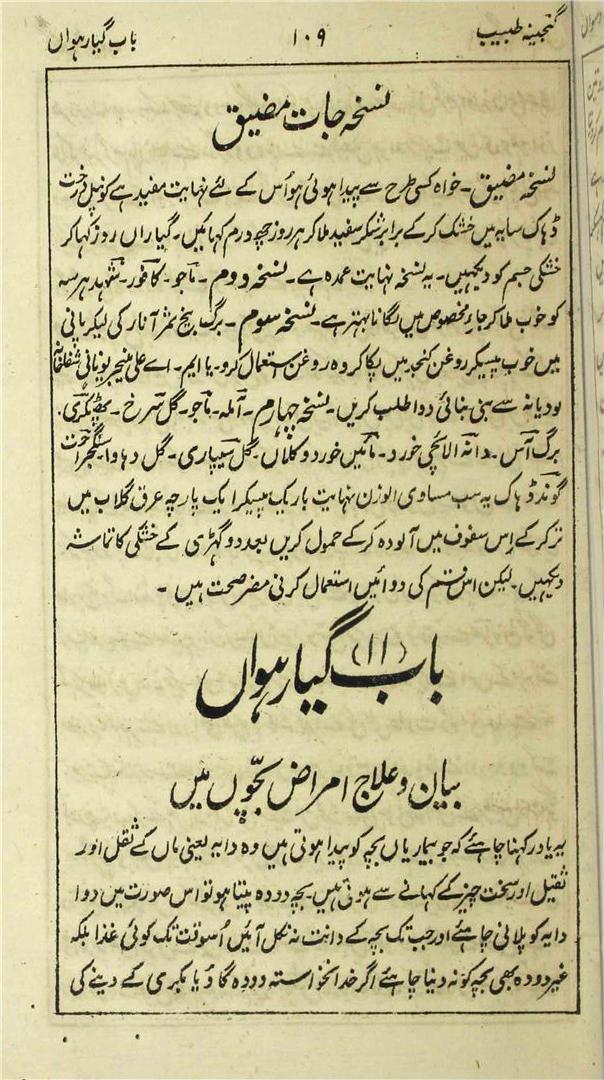 گنجینہ طبیب ۱۰۹ باب گیارہواں
نسخہ جات مضیق
نسخہ مضیق۔ خواہ کسی طرح سے پیدا ہوئی ہو اُس کے لئے نہایت مفید ہے کونپل درخت
ڈہاک سایہ میں خشک کرکے برابر شکر سفید ملا کر ہر روز چھ درم کہائیں۔ گیاراں روز کہا کر
خشکی جسم کو دیکہیں۔ یہ نسخہ نہایت عمدہ ہے۔ نسخہ دوم۔ ماجو۔ کافور۔ شہد ہر سہ
کو خوب ملا کر جاء مخصوص میں لگانا بہتر ہے۔ نسخہ سوم۔ برگ بیخ ثمر آنار کی لیکر پانی
میں خوب پیسکر روغن کنجد میں پکا کر وہ روغن استعمال کرو۔ یا ایم۔ اے علی منیجر یونانی شفاخانہ
لودیانہ سے بنی بنائی دوا طلب کریں۔ نسخہ چہارم۔ آملہ۔ ماجو۔ گل سرخ۔ پھٹکری۔
برگ آس۔ دانہ الائچی خورد۔ مائیں خورد و کلاں۔ گل سپیاری۔ گل دہاوا۔ سنگجراحت
گوند ڈہاک یہ سب مساوی الوزن نہایت باریک پیسکر ایک پارچہ عرق گلاب میں
تر کرکے اس سفوف میں آلودہ کرکے حمول کریں بعد دو گھڑی کے خشکی کا تماشہ
دیکہیں۔ لیکن اس قسم کی دوائیں استعمال کرنی مضر صحت ہیں۔
باب (۱۱) گیارہواں
بیان و علاج امراض بچّوں میں
یہ یاد رکہنا چاہئے کہ جو بیماریاں بچہ کو پیدا ہوتی ہیں وہ دایہ یعنی ماں کے ثقل اور
ثقیل اور سخت چیز کے کہانے سے ہوتی ہیں۔ بچہ دودہ پیتا ہو تو اس صورت میں دوا
دایہ کو پلانی چاہئے اور جب تک بچہ کے دانت نہ نکل آئیں اُسوقت تک کوئی غذا بلکہ
غیر دودہ بھی بچہ کو نہ دینا چاہئے اگر خدانخواستہ دودہ گاؤ یا بکری کے دینے کی